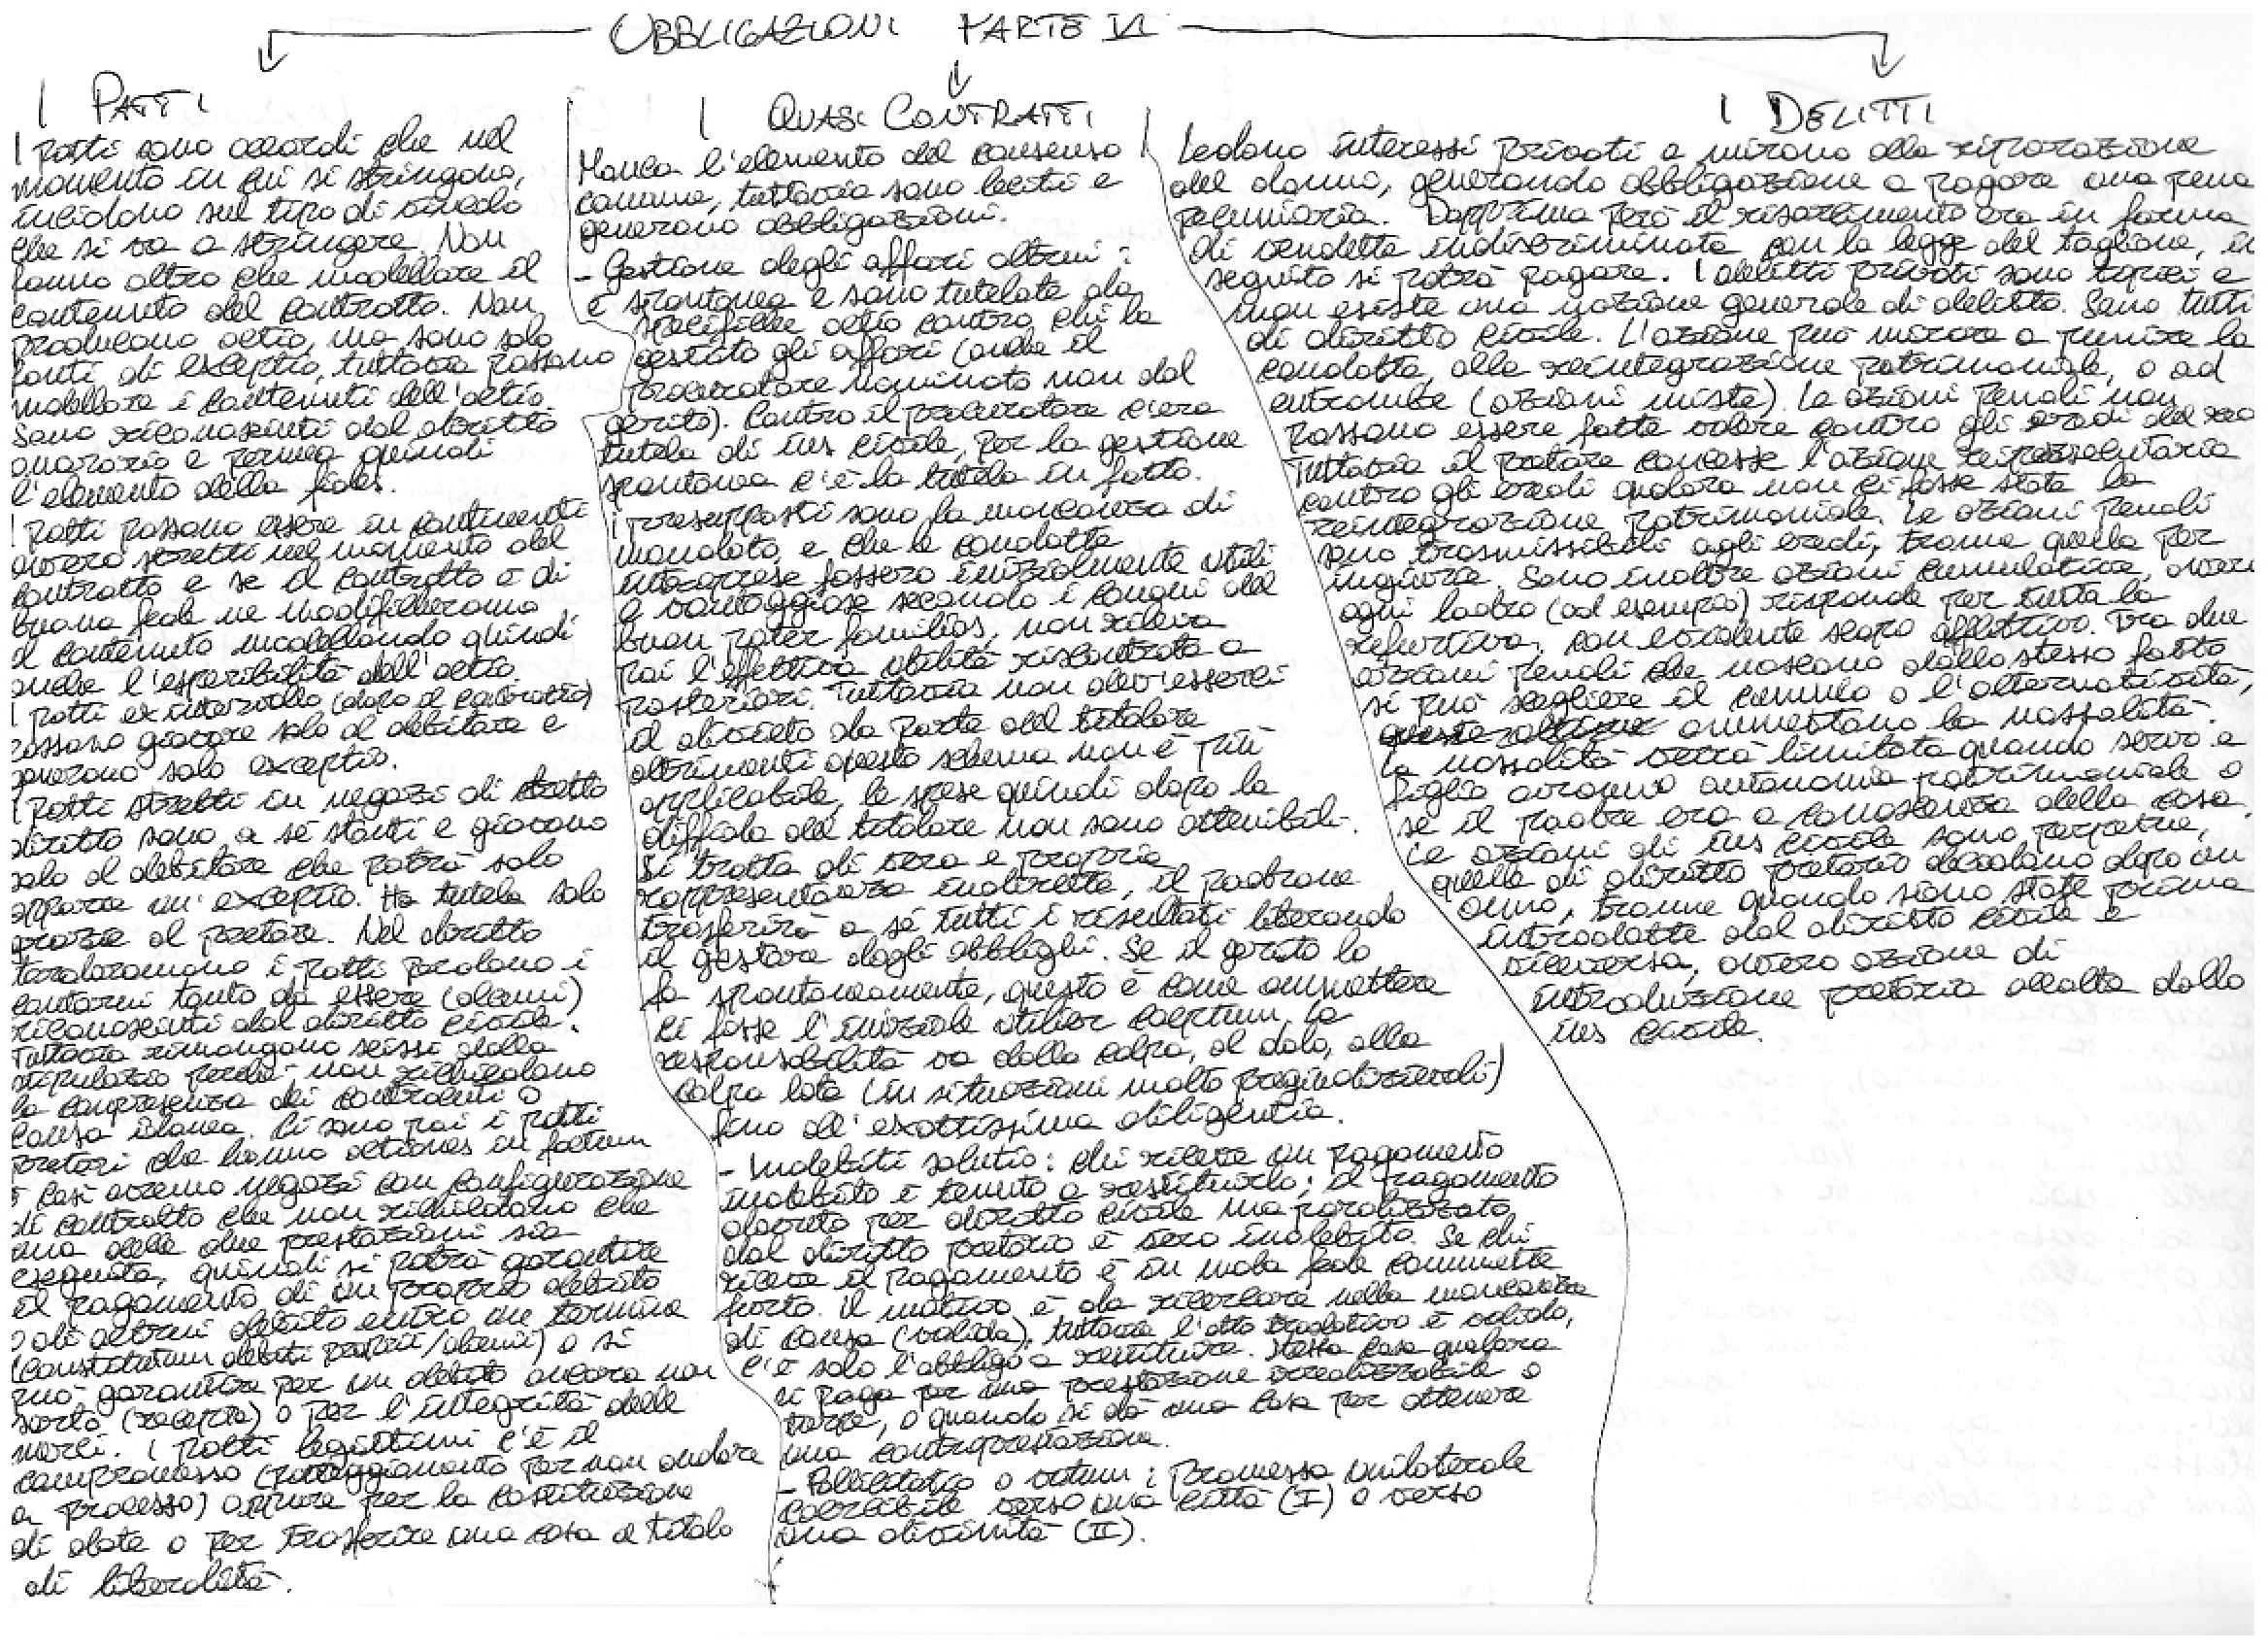 OBBLIGAZIONI PARTE VI
I PATTI
I patti sono accordi che nel
momento in cui si stringono,
incidono sul tipo di vincolo
che si va a stringere. Non
fanno altro che modellare il
contenuto del contratto. Non
producono actio, ma sono solo
fonti di exceptio, tuttavia possono
modellare i contenuti dell'actio
Sono riconosciuti dal diritto
onorario e permea quindi
l'elemento della fides.
I patti possono essere in continenti
ovvero stretti nel momento del
contratto e se il contratto è di
buona fede ne modificheranno
il contenuto modellando quindi
anche l'esperibilità dell'actio.
I patti ex intervallo (dopo il contratto)
possono giovare solo al debitore e
generano solo exceptio.
I patti stretti in negozi di stretto
diritto sono a sé stanti e giovano
solo al debitore che potrà solo
opporre un'exceptio. Ha tutela solo
grazie al pretore. Nel diritto
tardoromano i patti perdono i
contorni tanto da essere (alcuni)
riconosciuti dal diritto civile.
Tuttavia rimangono scissi dalla
stipulatio perché non richiedono
la compresenza dei contraenti o
causa idonea. Ci sono poi i patti
pretori che hanno actiones in factum
e così avremo negozi con configurazione
di contratto che non richiedono che
una delle due prestazioni sia
eseguita, quindi si potrà garantire
il pagamento di un proprio debito
o di altrui debito entro un termine
(constitutum debiti proprii/alieni) o si
può garantire per un debito ancora non
sorto (recepta) o per l'integrità delle
merci. I patti legittimi c'è il
compromesso (patteggiamento per non andare
a processo) oppure per la costituzione
di dote o per trasferire una cosa a titolo
di liberalità.
I QUASI CONTRATTI
Manca l'elemento del consenso
comune, tuttavia sono leciti e
generano obbligazioni.
- Gestione degli affari altrui:
è spontanea e sono tutelate da
specifiche actio contro chi ha
gestito gli affari (anche il
procuratore nominato non dal
gerito). Contro il procuratore c'era
tutela di ius civile, per la gestione
spontanea c'è la tutela in fatto.
I presupposti sono la mancanza di
mandato, e che le condotte
intraprese fossero inizialmente utili
e vantaggiose secondo i canoni del
buon pater familias, non rileva
poi l'effettiva utilità riscontrata a
posteriori. Tuttavia non dev'esserci
il divieto da parte del titolare
altrimenti questo schema non è più
applicabile, le spese quindi dopo la
diffida del titolare non sono ottenibili.
Si tratta di vera e propria
rappresentanza indiretta, il padrone
trasferirà a sé tutti i risultati liberando
il gestore dagli obblighi. Se il gerito lo
fa spontaneamente, questo è come ammettere
ci fosse l'iniziale utiliter coeptum. La
responsabilità va dalla colpa, al dolo, alla
colpa lata (in situazioni molto pregiudizievoli)
fino all'exactissima diligentia.
- Indebiti solutio: chi riceve un pagamento
indebito è tenuto a restituirlo; il pagamento
dovuto per diritto civile ma paralizzato
dal diritto pretorio è vero indebito. Se chi
riceve il pagamento è in mala fede commette
furto. Il motivo è da ricercare nella mancanza
di causa (valida), tuttavia l'atto traslativo è valido,
c'è solo l'obbligo a restituire. Stessa cosa qualora
si paga per una prestazione irrealizzabile o
turpe, o quando si dà una cosa per ottenere
una controprestazione.
- Pollicitatio o votum: promessa unilaterale
coercibile verso una città (I) o verso
una divinità (II).
I DELITTI
Ledono interessi privati e mirano alla riparazione
del danno, generando obbligazione a pagare una pena
pecuniaria. Dapprima però il risarcimento era in forma
di vendetta indiscriminata con la legge del taglione, in
seguito si potrà pagare. I delitti privati sono tipici e
non esiste una nozione generale di delitto. Sono tutti
di diritto civile. L'azione può mirare a punire la
condotta, alla reintegrazione patrimoniale, o ad
entrambe (azioni miste). Le azioni penali non
possono essere fatte valere contro gli eredi del reo
Tuttavia il pretore concesse l'azione reipersecutoria
contro gli eredi qualora non ci fosse stata la
reintegrazione patrimoniale. Le azioni penali
sono trasmissibili agli eredi, tranne quella per
ingiuria. Sono inoltre azioni cumulative, ovvero
ogni ladro (ad esempio) risponde per tutta la
refurtiva, con evidente scopo afflittivo. Tra due
azioni penali che nascono dallo stesso fatto
si può scegliere il cumulo o l'alternatività,
ammettono la nossalità.
La nossalità verrà limitata quando servo e
figlio avranno autonomia patrimoniale o
se il padre era a conoscenza della cosa.
Le azioni di ius civile sono perpetue,
quelle di diritto pretorio decadono dopo un
anno, tranne quando siano state prima
introdotte dal diritto civile e
viceversa, ovvero azione di
introduzione pretoria accolta dallo
ius civile.